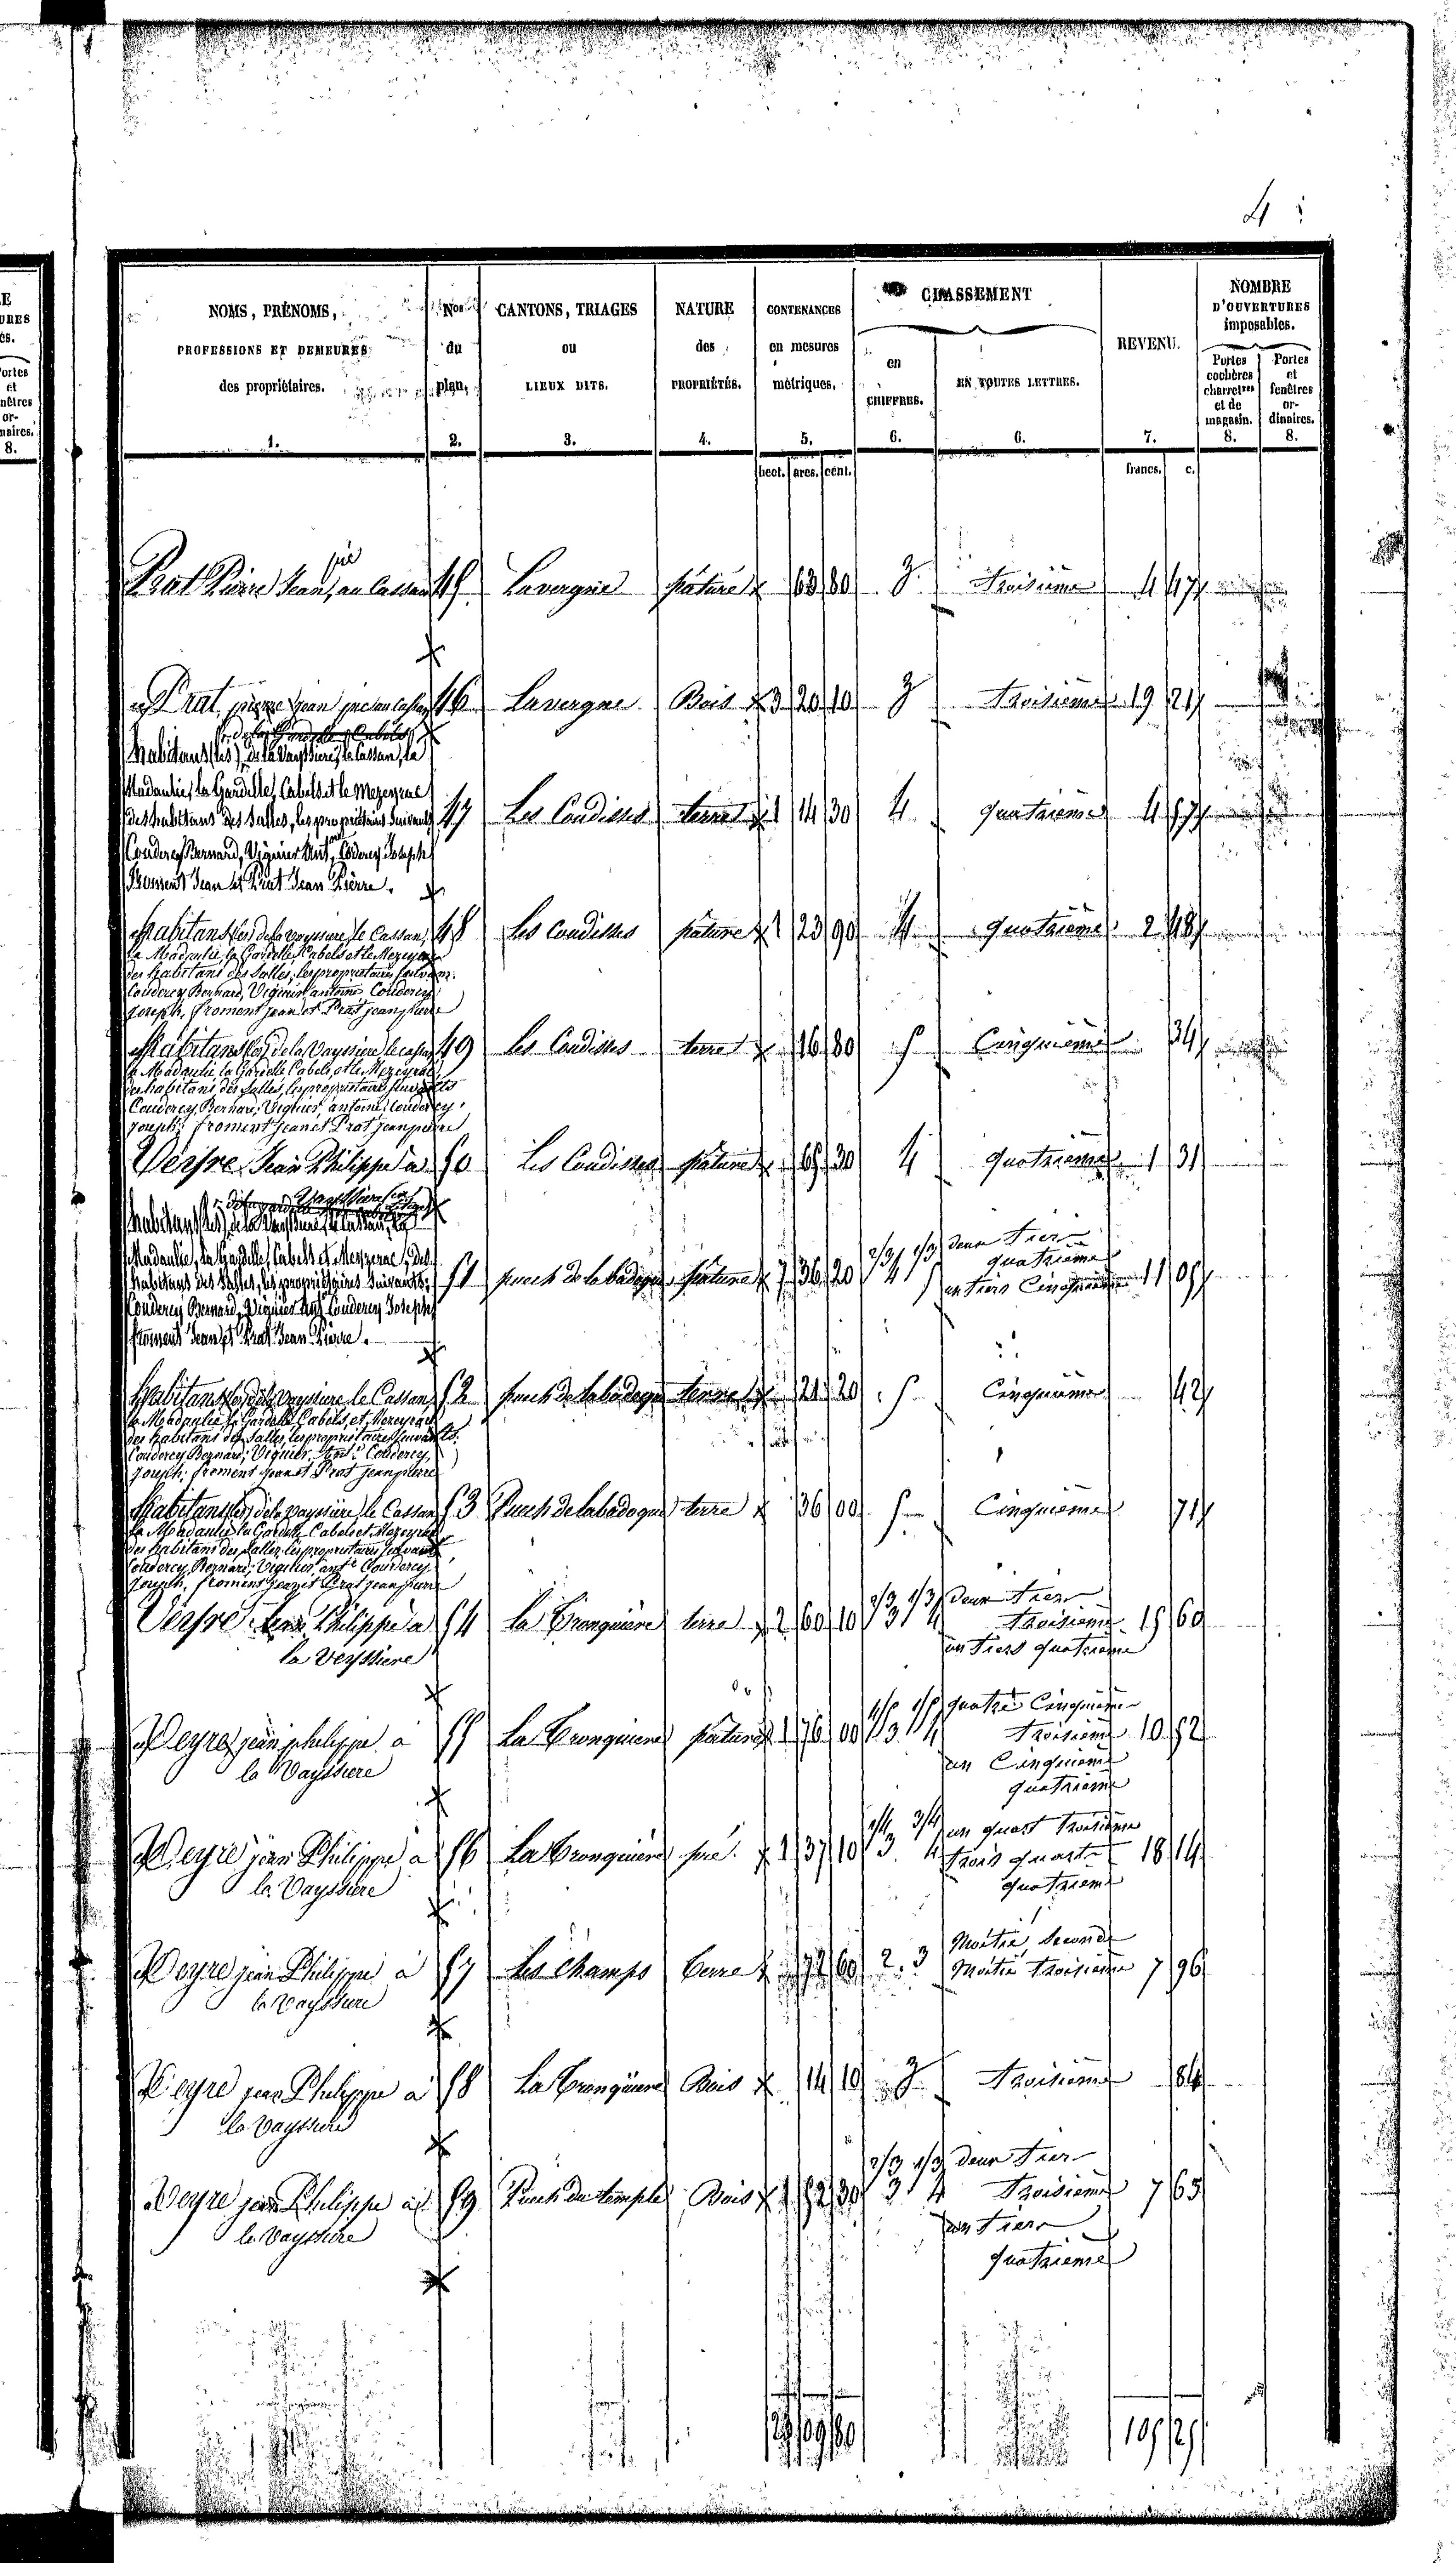 4
NOMS, PRÉNOMS,
PROFESSIONS ET DEMEURES
des propriétaires.
1.
Nos
du
plan,
2.
CANTONS, TRIAGES
ou
LIEUX DITS.
3.
NATURE
des
PROPRIÉTÉS.
4.
CONTENANCES
en mesures
métriques,
5.
CLASSEMENT
en
CHIFFRES.
6.
EN TOUTES LETTRES.
6.
REVENU.
7.
NOMBRE
D'OUVERTURES
imposables.
Portes
cochères
charretres
et de
magasin.
8.
Portes
et
fenêtres
or-
dinaires.
8.
hect. ares. cent. francs. c.
Prat Pierre Jean, au Cassan 45 Lavergne pature 63 80 3 Troisième 4 47
Prat pierre jean 46 Lavergne Bois 3 20 10 3 Troisième 19 21
habitans (les) de la Vayssiere, le Cassan, la
Madaulie, la Gardelle, Cabels et le Mezeyrac
des habitans des Salles, les propriétaires suivants 47 Les Condisses terre 1 14 30 4 quatrieme 4 57
Coudercy Bernard, Viguier Ant, Coudercy Joseph
Froment Jean et Prat Jean Pierre.
habitans (les) de la vayssiere, le Cassan, 48 les Condisses pature 1 23 90 4 quatrieme 2 48
la Madaulie, la Gardelle, Cabels et le Mezeyrac
des habitans des Salles, les propriétaires suivans
Coudercy Bernard, Viguier antoine Coudercy
joseph, froment jean et Prat jean pierre
habitans (les) de la Vayssiere 49 les Condisses terre 16 80 5 Cinquieme 34
la Madaulie la Gardelle Cabels, et le Mezeyrac
des habitans des Salles, les propriétaires suivants
Coudercy Bernard, Viguier, antoine, Coudercy
joseph, froment jean et Prat jean pierre
Veyre Jean Philippe à 50 Les Condisses pature 65 30 4 quatrieme 1 31
habitans (les) de la Vayssiere, le Cassan, la
Madaulie, la Gardelle, Cabels et Mezeyrac, des 2/3 1/3 deux tiers
habitans des Salles, les propriétaires suivants: 51 puech de labadogue pature 7 36 20 4 5 quatrieme 11 05
Coudercy Bernard, Viguier Ant Coudercy Joseph un tiers Cinquieme
froment Jean et Prat Jean Pierre.
habitans (les) de la vayssiere le Cassan 52 puech de labadogue terre 21 20 5 Cinquieme 42
la Madaulie, la Gardelle Cabels, et Mezeyrac
des habitans des Salles, les propriétaires suivants
Coudercy Bernard, Viguier, Ant Coudercy,
joseph, froment jean et Prat jean pierre
habitans (les) de la vayssière, le Cassan 53 Puech de labadogue terre 36 00 5 Cinquieme 71
la Madaulie la Gardelle, Cabels et Mezeyrac
des habitans des Salles, les propriétaires suivants
Coudercy Bernard, Viguier, ant Coudercy
Joseph, froment jean et Prat jean pierre 2/3 1/3 deux tiers
Veyre Jean Philippe à 54 la Bronquière terre 2 60 10 3 4 Troisieme 15 60
la Veyssiere un tiers quatrieme
4/5 1/5 quatre Cinquieme
Veyre jean philippe à 55 la Bronquiere pature 1 76 00 3 4 Troisieme 10 52
la Vayssiere un Cinquieme
quatrieme
1/4 3/4 un quart Troisieme
Veyre jean Philippe à 56 la Bronquiere pré 1 37 10 3 4 trois quarts 18 14
la Vayssiere quatrieme
Moitié Seconde
Veyre jean Philippe à 57 Les Champs terre 72 60 2 3 Moitié Troisieme 7 96
la Vayssiere
Veyre jean Philippe à 58 La Bronquiere Bois 14 10 3 Troisieme 84
la Vayssiere
2/3 1/3 deux tiers
Veyre jean Philippe à 59 Puech du temple Bois 1 52 30 3 4 Troisieme 7 63
la Vayssiere un tiers
quatrieme
105 25